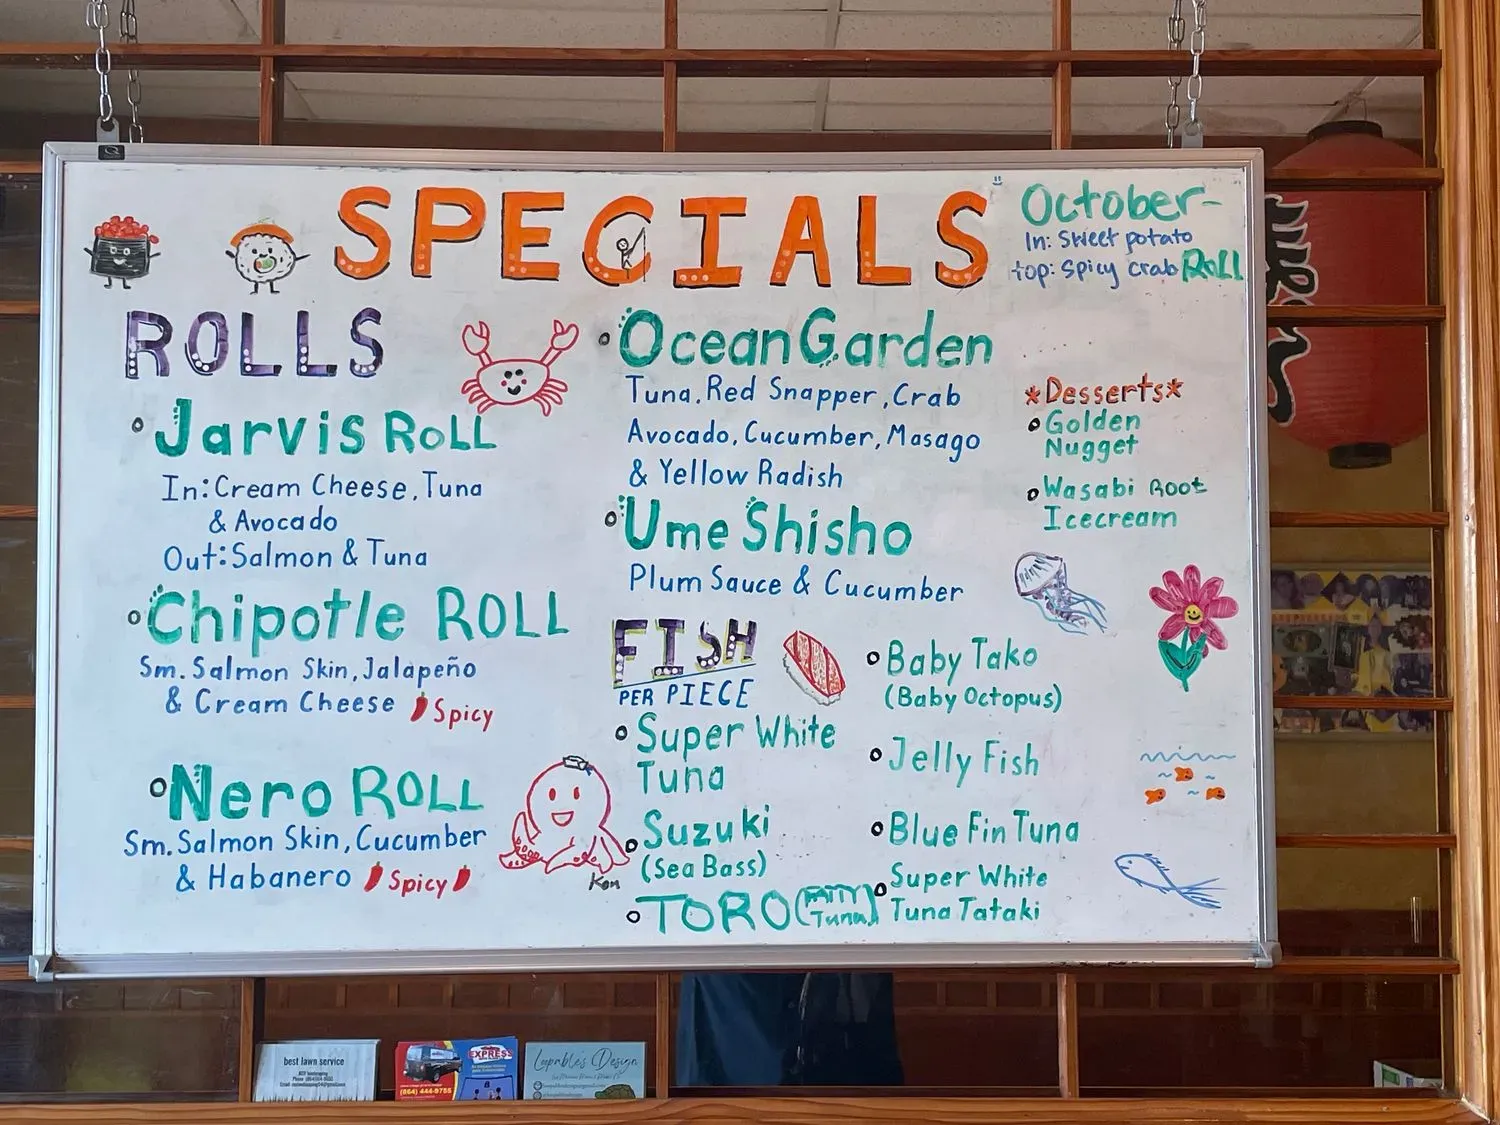 SPECIALS
October-
In: Sweet potato
top: Spicy crab ROLL
ROLLS
Jarvis ROLL
In: Cream Cheese, Tuna
& Avocado
Out: Salmon & Tuna
Chipotle ROLL
Sm. Salmon Skin, Jalapeño
& Cream Cheese Spicy
Nero ROLL
Sm. Salmon Skin, Cucumber
& Habanero Spicy
Ken
Ocean Garden
Tuna, Red Snapper, Crab
Avocado, Cucumber, Masago
& Yellow Radish
Ume Shisho
Plum Sauce & Cucumber
FISH
PER PIECE
Super White
Tuna
Suzuki
(Sea Bass)
TORO (FATTY
Tuna)
Baby Tako
(Baby Octopus)
Jelly Fish
Blue Fin Tuna
Super White
Tuna Tataki
*Desserts*
Golden
Nugget
Wasabi Root
Icecream
best lawn service
EXPRESS
(864) 444-9755
Loopable's Design